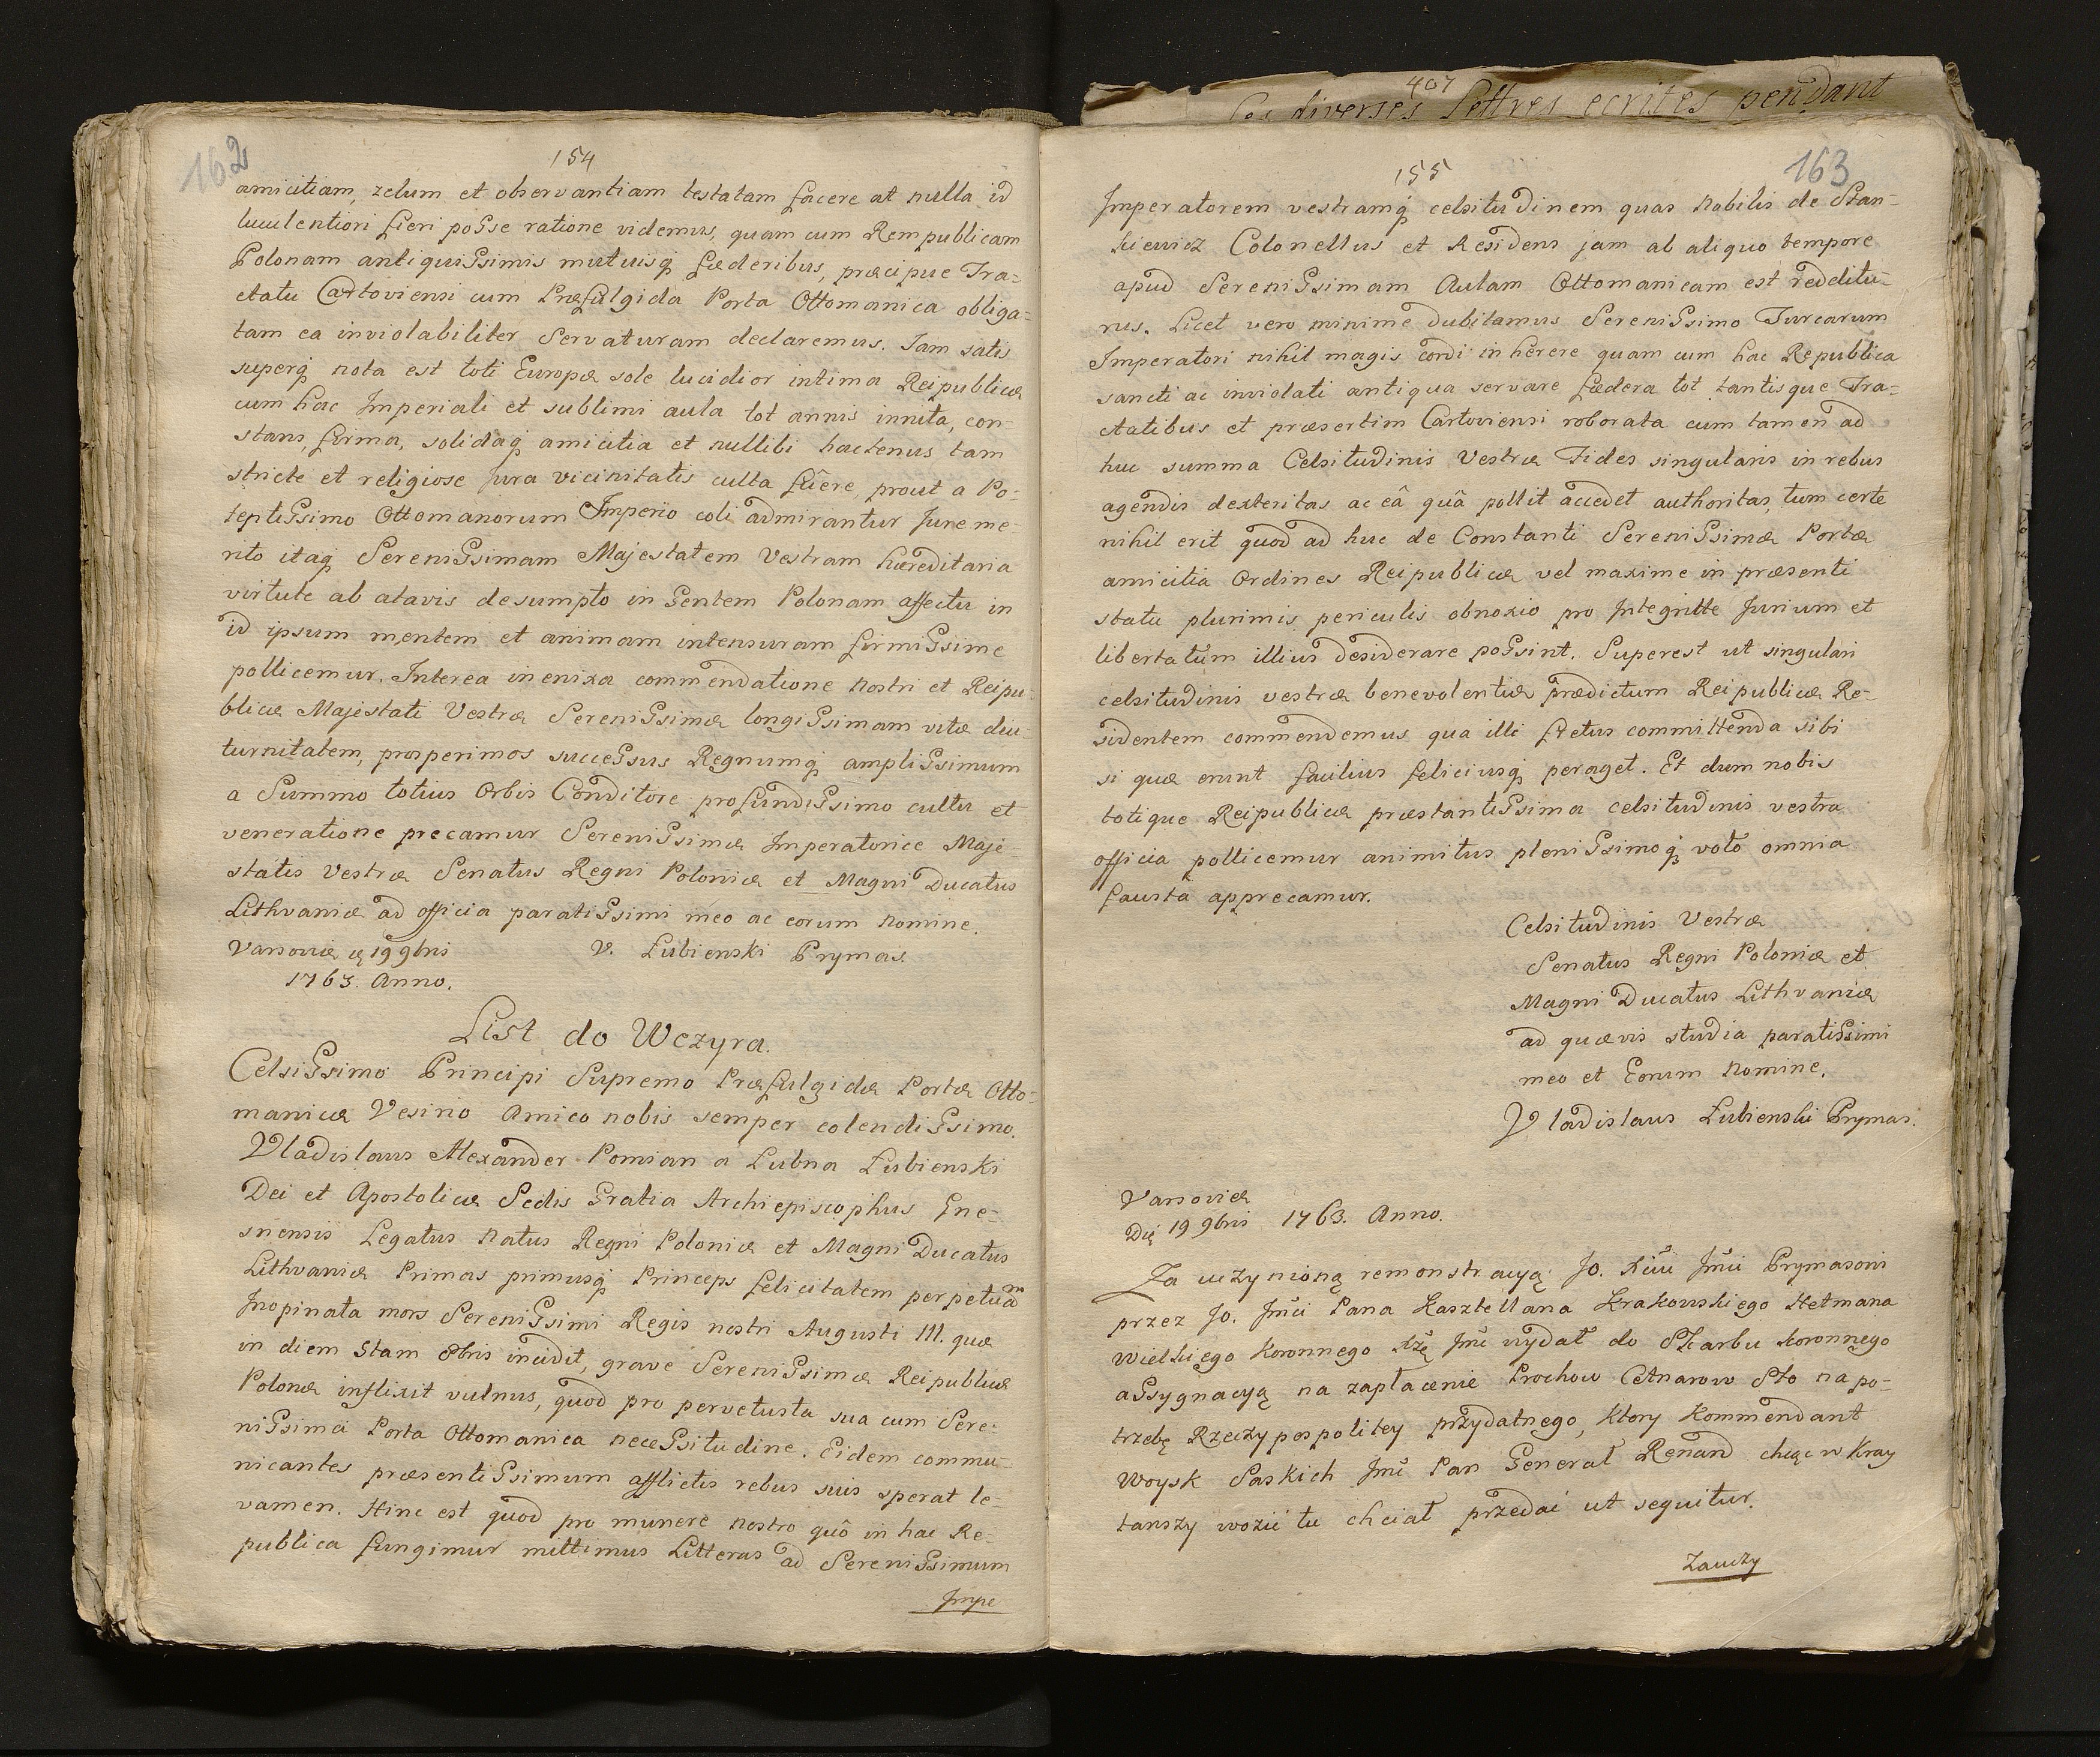 162
154
amicitiam, zelum et observantiam testatam facere at nulla id
luculentiori fieri posse ratione videmus, quam cum Rempublicam
Polonam antiquissimis mutuisq̨ fæderibus, præcipue Tra-
ctatu Cartoviensi cum Præfulgida Porta Ottomanica obliga-
tam ea inviolabiliter servaturam declaremus. Jam satis
superq̨ nota est toti Europæ sole lucidior intima Reipublicæ
cum hac Imperiali et sublimi aula tot annis innita, con-
stans, firma, solidaq̨ amicitia et nullibi hactenus tam
stricte et religiose jura vicinitatis culta fuêre, prout a Po-
tentissimo Ottomanorum Imperio coli admirantur Jure me-
rito itaq̨ Serenissimam Majestatem Vestram hæreditaria
virtute ab atavis desumpto in Gentem Polonam affectu in
id ipsum mentem et animam intensuram firmissime
pollicemur. Interea in enixa commendatione nostri et Reipu-
blicæ Majestati Vestræ Serenissimæ longissimam vitæ diu-
turnitatem, prosperimos successus Regnumq̨ amplissimum
a Summo totius Orbis Conditore profundissimo cultu et
veneratione precamur Serenissimæ Imperatorice Maje-
statis Vestræ Senatus Regni Poloniæ et Magni Ducatus
Lithvaniæ ad officia paratissimi meo ac eorum nomine.
Varsoviæ 19 9bris V. Łubienski Prymas
1763. Anno.
List do Wezyra.
Celsissimo Principi Supremo Præfulgidæ Portæ Otto-
manicæ Vesirio Amico nobis semper colendissimo.
Vladislaus Alexander Pomian a Lubna Łubienski
Dei et Apostolicæ Sedis Gratia Archiepiscophus Gne-
snensis Legatus Natus Regni Poloniæ et Magni Ducatus
Lithvaniæ Primas primusq̨ Princeps felicitatem perpetuam
Inopinata mors Serenissimi Regis nostri Augusti III. quæ
in diem 5tam 8bris incidit, grave Serenissimæ Reipublicæ
Polonæ inflixit vulnus, quod pro pervetusta sua cum Sere-
nissima Porta Ottomanica necessitudine. Eidem commu-
nicantes præsentissimum afflictis rebus suis sperat le-
vamen. Hinc est quod pro munere nostro quô in hac Re-
publica fungimur mittimus Litteras ad Serenissimum
Impe
407
les diverses Lettres ecrites pendant
163
155
Imperatorem vestramq̨ celsitudinem quas Nobilis de Stan-
kiewicz Colonellus et Residens jam ab aliquo tempore
apud Serenissimam Aulam Ottomanicam est redditu-
rus. Licet vero minime dubitamus Serenissimo Turcarum
Imperatori nihil magis cordi inhêrere quam cum hac Republica
sancti ac inviolati antiqua servare fædera tot tantisque Tra-
ctatibus et præsertim Cartoviensi roborata cum tamen ad
huc summa Celsitudinis Vestræ Fides singularis in rebus
agendis dexteritas ac eâ quâ pollit accedet authoritas, tum certe
nihil erit quod ad huc de Constanti Serenissimæ Portæ
amicitia Ordines Reipublicæ vel maxime in præsenti
statu plurimis periculis obnoxio pro Integritte Jurium et
libertatum illius desiderare possint. Superest ut singulari
celsitudinis vestræ benevolentiæ prædictum Reipublicæ Re-
sidentem commendemus qua ille fretus committenda sibi
si quæ erunt facilius feliciusq̨ peraget. Et dum nobis
totique Reipublicæ præstantissima celsitudinis vestra
officia pollicemur animitus plenissimoq̨ voto omnia
fausta apprecamur.
Celsitudinis Vestræ
Senatus Regni Poloniæ et
Magni Ducatus Lithvaniæ
ad quævis studia paratissimi
meo et Eorum Nomine.
Vladislaus Łubienski Prymas.
Varsoviæ
Die 19 9bris 1763. Anno.
Za uczynioną remonstracyą Jo. Xciu Jmci Prymasowi
przez Jo. Jmci Pana Kasztellana Krakowskiego Hetmana
Wielkiego Koronnego Xże Jmc wydał do Skarbu koronnego
assygnacyą na zapłacenie Prochow Cetnarow Sto na po-
trzebę Rzeczypospolitey przydatnego, ktory Kommendant
Woysk Saskich Jmc Pan Generał Renard chcąc w Kray
tanszy wozic tu chciał przedac ut sequitur.
Zauczy